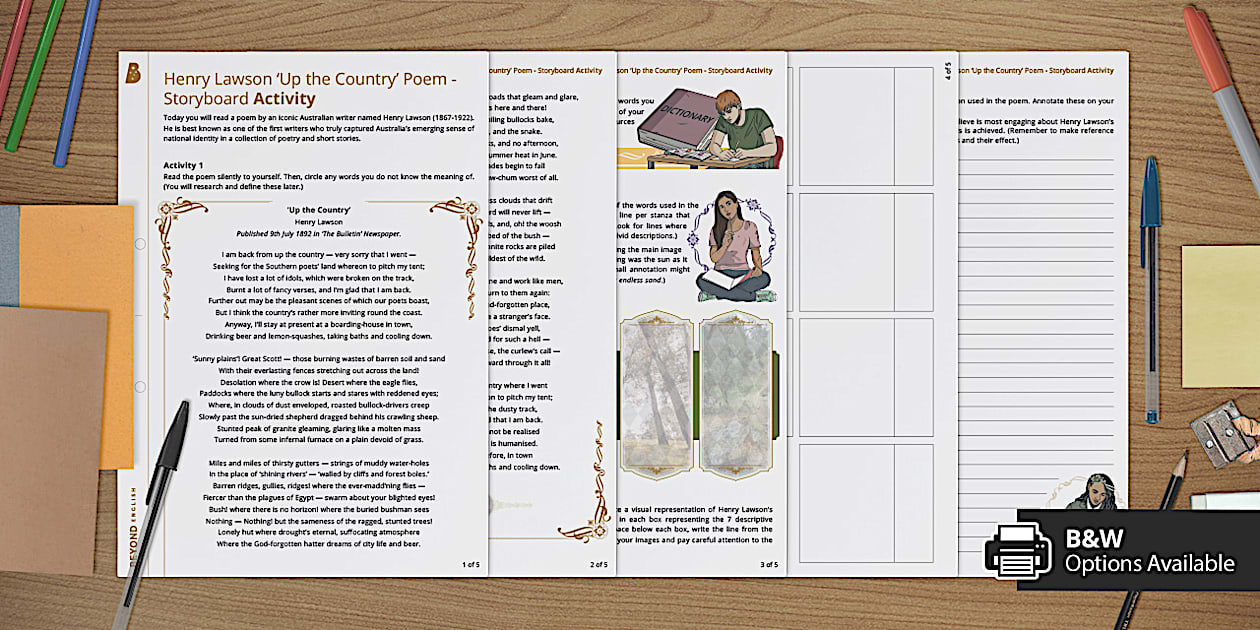 Henry Lawson ‘Up the Country’ Poem -
Storyboard Activity
Today you will read a poem by an iconic Australian writer named Henry Lawson (1867-1922).
He is best known as one of the first writers who truly captured Australia’s emerging sense of
national identity in a collection of poetry and short stories.
Activity 1
Read the poem silently to yourself. Then, circle any words you do not know the meaning of.
(You will research and define these later.)
‘Up the Country’
Henry Lawson
Published 9th July 1892 in ‘The Bulletin’ Newspaper.
I am back from up the country — very sorry that I went —
Seeking for the Southern poets’ land whereon to pitch my tent;
I have lost a lot of idols, which were broken on the track,
Burnt a lot of fancy verses, and I’m glad that I am back.
Further out may be the pleasant scenes of which our poets boast,
But I think the country’s rather more inviting round the coast.
Anyway, I’ll stay at present at a boarding-house in town,
Drinking beer and lemon-squashes, taking baths and cooling down.
‘Sunny plains’! Great Scott! — those burning wastes of barren soil and sand
With their everlasting fences stretching out across the land!
Desolation where the crow is! Desert where the eagle flies,
Paddocks where the luny bullock starts and stares with reddened eyes;
Where, in clouds of dust enveloped, roasted bullock-drivers creep
Slowly past the sun-dried shepherd dragged behind his crawling sheep.
Stunted peak of granite gleaming, glaring like a molten mass
Turned from some infernal furnace on a plain devoid of grass.
Miles and miles of thirsty gutters — strings of muddy water-holes
In the place of ‘shining rivers’ — ‘walled by cliffs and forest boles.’
Barren ridges, gullies, ridges! where the ever-madd’ning flies —
Fiercer than the plagues of Egypt — swarm about your blighted eyes!
Bush! where there is no horizon! where the buried bushman sees
Nothing — Nothing! but the sameness of the ragged, stunted trees!
Lonely hut where drought’s eternal, suffocating atmosphere
Where the God-forgotten hatter dreams of city life and beer.
BEYOND ENGLISH
1 of 5
Poem - Storyboard Activity
that gleam and glare,
here and there!
bullocks bake,
and the snake.
and no afternoon,
heat in June.
begin to fall
worst of all.
clouds that drift
will never lift —
and, oh! the woosh
of the bush —
rocks are piled
of the wild.
and work like men,
to them again:
place,
a stranger’s face.
dismal yell,
for such a hell —
the curlew’s call —
through it all!
country where I went
to pitch my tent;
the dusty track,
that I am back.
not be realised
is humanised.
in town,
and cooling down.
2 of 5
‘Up the Country’ Poem - Storyboard Activity
words you
of your
DICTIONARY
of the words used in the
line per stanza that
look for lines where
descriptions.)
the main image
was the sun as it
annotation might
endless sand.)
a visual representation of Henry Lawson’s
in each box representing the 7 descriptive
below each box, write the line from the
your images and pay careful attention to the
3 of 5
4 of 5
‘Up the Country’ Poem - Storyboard Activity
used in the poem. Annotate these on your
is most engaging about Henry Lawson’s
is achieved. (Remember to make reference
and their effect.)
B&W
Options Available